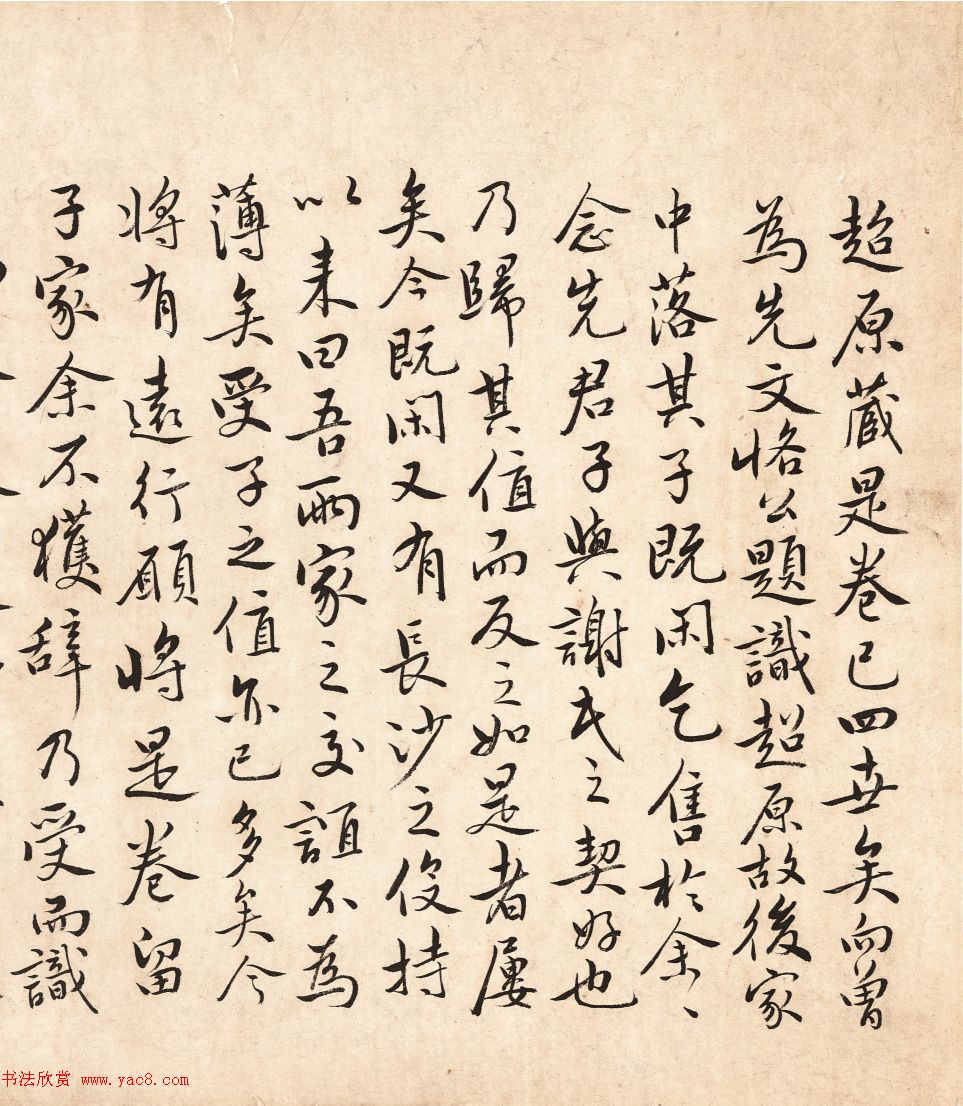 超原藏是卷已四世矣向曾
為先文恪公題識超原故後家
中落其子既閑乞售於余〻
念先君子與謝氏之契好也
乃歸其值而反之如是者屢
矣今既閑又有長沙之役持
以来曰吾兩家之交誼不為
薄矣受子之值亦已多矣今
將有遠行願將是卷留
子家余不獲辞乃受而識
书法欣赏 www.yac8.com